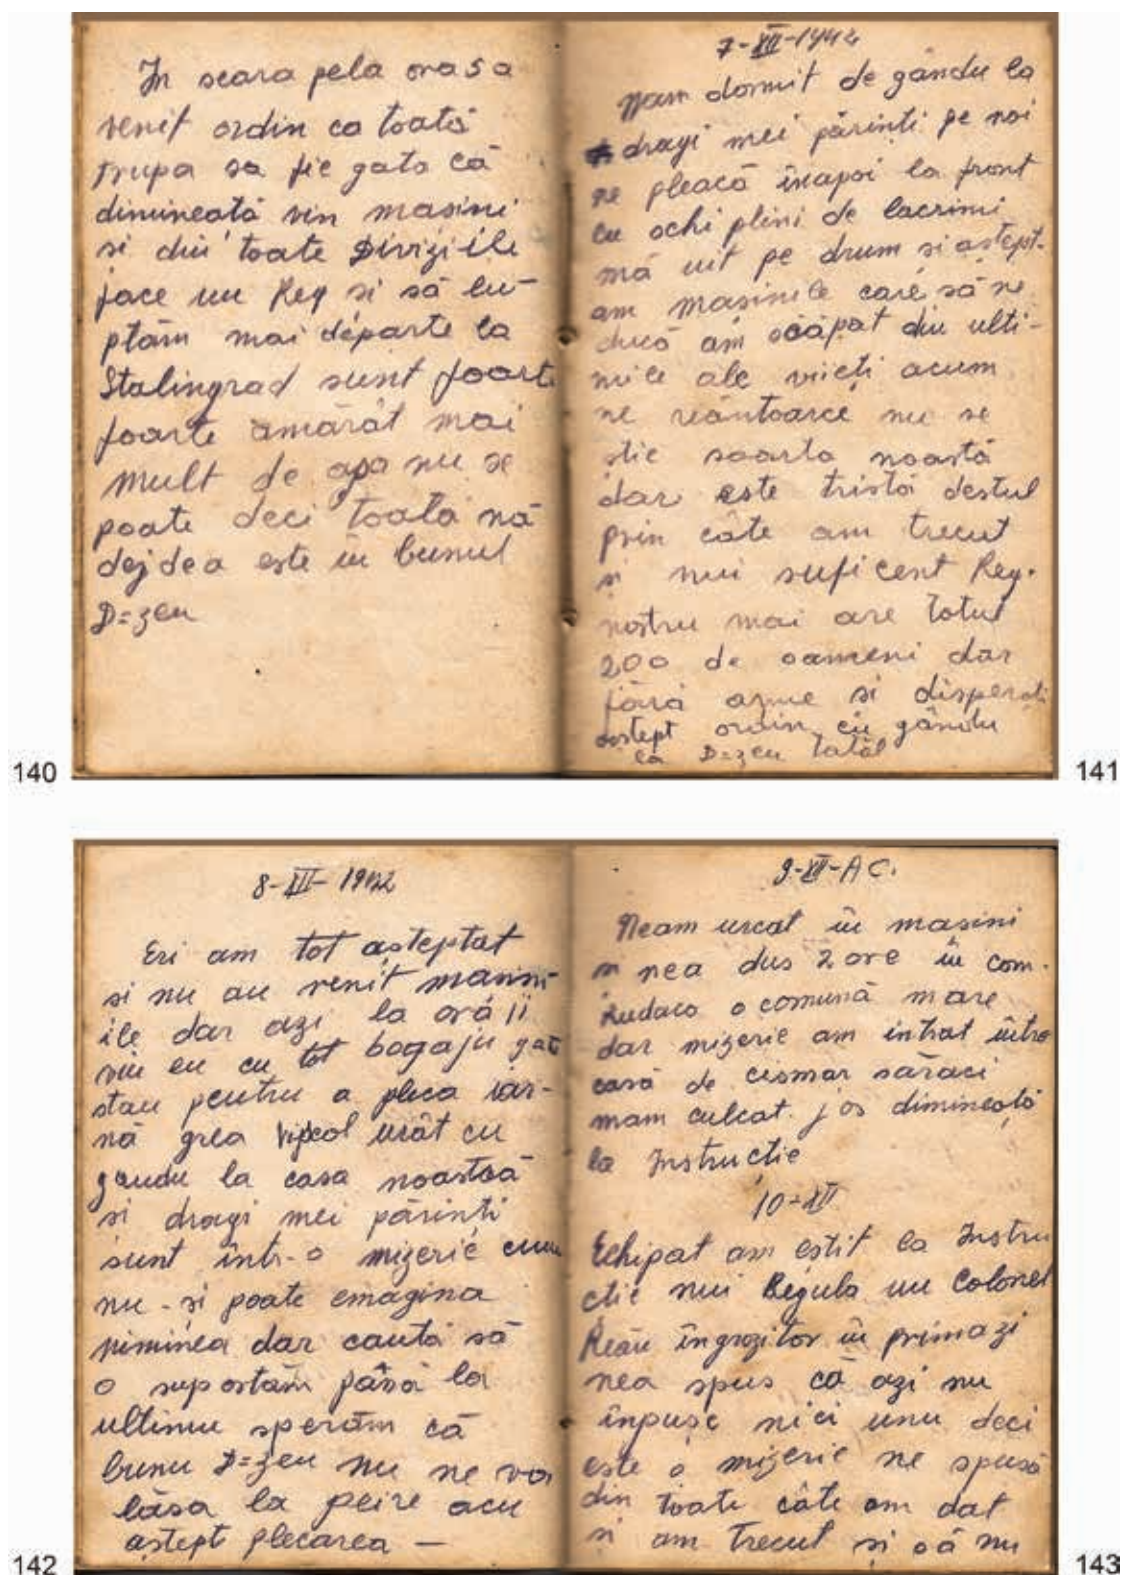 In seara pela ora 5 a
venit ordin ca toată
trupa sa fie gata că
dimineată vin masini
si din toate Divizi-ile
face un Reg si să lu-
ptăm mai départe la
Stalingrad sunt foarte
foarte amărât mai
mult de asa nu se
poate deci toată nă
dejdea este în bunul
D=zeu
140
7-XII-1942
Nam dormit de gându la
dragi mei părinti pe noi
ne pleacă înapoi la front
cu ochi plini de lacrimi
mă uit pe drum si astept-
am masinile care să ne
ducă am scăpat din ulti-
mile ale vieti acum
ne reântoarce nu se
stie soarta noastă
dar este tristă destul
prin câte am trecut
si nui suficent Reg.
nostru mai are totul
200 de oameni dar
fără arme si disperati
astept ordin cu gându
la D=zeu tatăl
141
8-XII-1942
Eri am tot așteptat
si nu au venit masini
ile dar azi la oră 11
viu eu cu tot bogaju gata
stau pentru a pleca iar-
nă grea vipcol urât cu
gandu la casa noastră
si dragi mei părinti
sunt într-o mizerie cum
nu-si poate emagina
niminea dar caută să
o suportăm până la
ultimu sperăm că
bunu D=zeu nu ne va
lăsa la peire acu
astept plecarea —
142
9-XII-AC.
Neam urcat în masini
si nea dus 2 ore în com.
Rudaco o comună mare
dar mizerie am intrat într-o
casă de cismar săraci
mam culcat jos dimineată
la Instructie
10-XII
Echipat am estit la Instru
ctie nui Regula un Colonel
Reău îngrozitor în prima zi
nea spus că azi nu
înpușc nici unu deci
este o mizerie ne spusă
din toate câte am dat
si am trecut și să nu
143